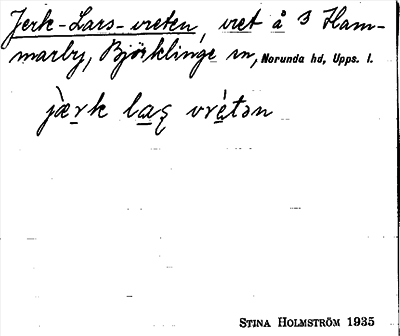 Jerk-Lars-vreten, vret å 3 Ham-
marby, Björklinge sn, Norunda hd, Upps. l.
jæ̀rk laʂ vrétən
STINA HOLMSTRÖM 1935